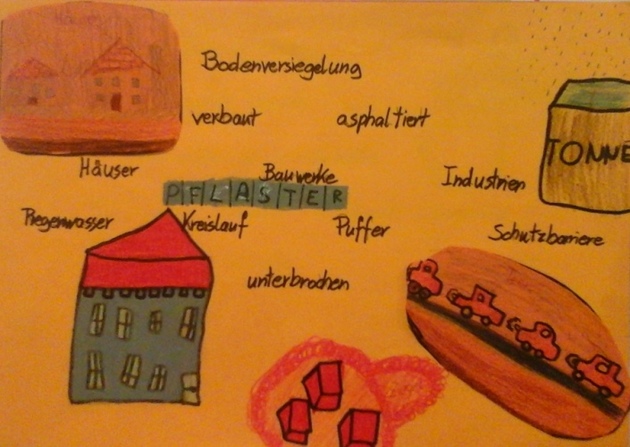 Bodenversiegelung
verbaut asphaltiert
TONNE
Häuser Bauwerke Industrien
PFLASTER
Regenwasser Kreislauf Puffer Schutzbarriere
unterbrochen